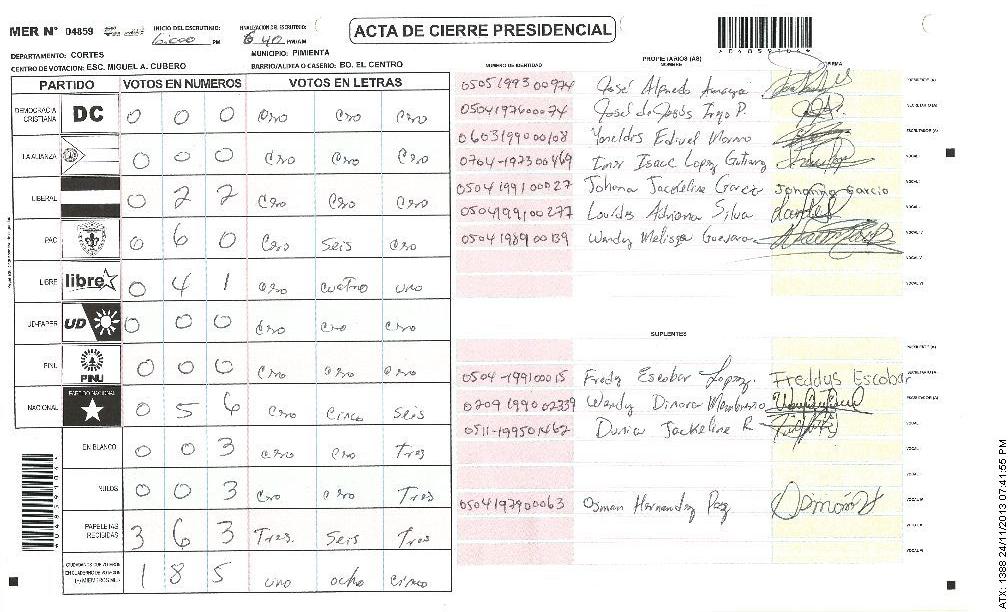 MER N° 04859 INICIO DEL ESCRUTINIO: PM FINALIZACION DEL ESCRUTINIO: 6:40 PM/AM
ACTA DE CIERRE PRESIDENCIAL
DEPARTAMENTO: CORTES MUNICIPIO: PIMIENTA
CENTRO DE VOTACION: ESC. MIGUEL A. CUBERO BARRIO/ALDEA O CASERIO: BO. EL CENTRO
PARTIDO VOTOS EN NUMEROS VOTOS EN LETRAS
DEMOCRACIA CRISTIANA DC 0 0 0 Cro Cro Cro
LA ALIANZA 0 0 0 Cro Cro Cro
LIBERAL 0 2 2 Cro
PAC 0 6 0 Cro Seis Cro
LIBRE libre 0 4 1 Cro cuatro uno
UD-FAPER UD 0 0 0 Cro Cro Cro
PINU PINU 0 0 0 Cro Cro Cro
NACIONAL PARTIDO NACIONAL 0 5 6 Cro Cinco Seis
EN BLANCO 0 0 3 Cro Cro Tres
NULOS 0 0 3 Cro Cro Tres
PAPELETAS RECIBIDAS 3 6 3 Tres Seis Tres
1 8 5 uno ocho cinco
NUMERO DE IDENTIDAD PROPIETARIOS (AS) NOMBRE FIRMA
0505199300974 José Alfredo Amaya
0504197600074 José de Jesús P.
0603199000108 Edivel
0704-197300469 Isaac Lopez
0504199100027 Johana Jacqueline Garcia Johanna Garcia
0504199100277 Lourdes Adriana Silva
0504198900139 Wendy Melissa Guevara
SUPLENTES
0504-199100015 Fredy Escobar Lopez. Freddys Escobar
0209199002339 Wendy Dinora Membreño
0511-199501462 Dunia Jackeline R
0504197900063 Osman Hernandez Paz
ATX: 1388 24/11/2013 07:41:55 PM